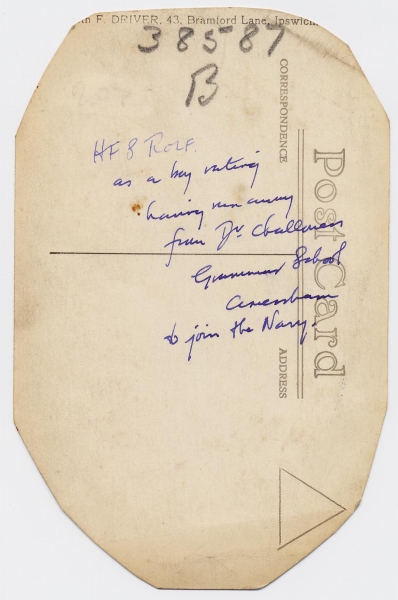 F. DRIVER, 43, Bramford Lane, Ipswich
38587
B
CORRESPONDENCE
Post Card
ADDRESS
HF8 ROLF.
as a boy rating
having run away
from Dr. Challoners
Grammar School
Amersham
to join the Navy.